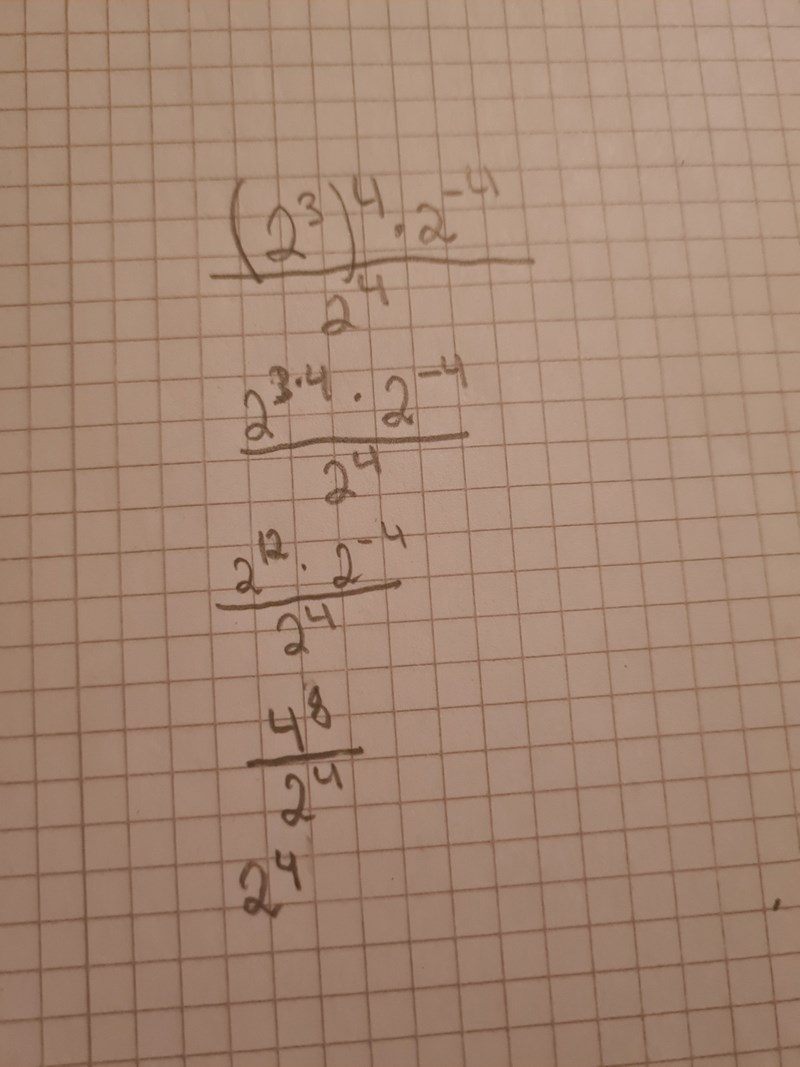 \frac{(2^3)^4 \cdot 2^{-4}}{2^4}
\frac{2^{3 \cdot 4} \cdot 2^{-4}}{2^4}
\frac{2^{12} \cdot 2^{-4}}{2^4}
\frac{4^8}{2^4}
2^4